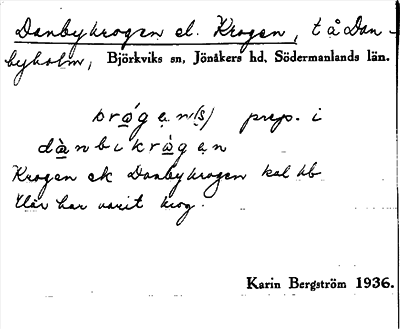 Danbykrogen el. Krogen, t å Dan-
byholm, Björkviks sn, Jönåkers hd, Södermanlands län.
krǫ̀gęn(s) prep. i
dànbikrǫ̀gęn
Krogen ek Danbykrogen kal hb
Här har varit krog.
Karin Bergström 1936.